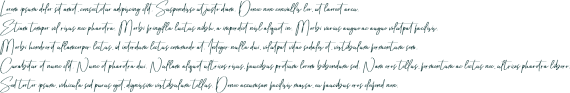 Lorem ipsum dolor sit amet, consectetur adipiscing elit. Suspendisse at justo diam. Donec nec convallis leo, at laoreet arcu.
Etiam tempor vel risus nec pharetra. Morbi fringilla lectus nibh, a imperdiet nisl aliquet in. Morbi varius augue ac augue volutpat facilisis.
Morbi hendrerit ullamcorper lectus, id interdum lectus commodo at. Integer nulla dui, volutpat vitae sodales et, vestibulum fermentum sem.
Curabitur et nunc elit. Nunc et pharetra dui. Nullam aliquet ultrices risus, faucibus pretium lorem bibendum sed. Nam eros tellus, fermentum ac lectus nec, ultrices pharetra libero.
Sed tortor ipsum, vehicula sed purus eget, dignissim vestibulum tellus. Donec accumsan facilisis massa, eu faucibus eros eleifend non.